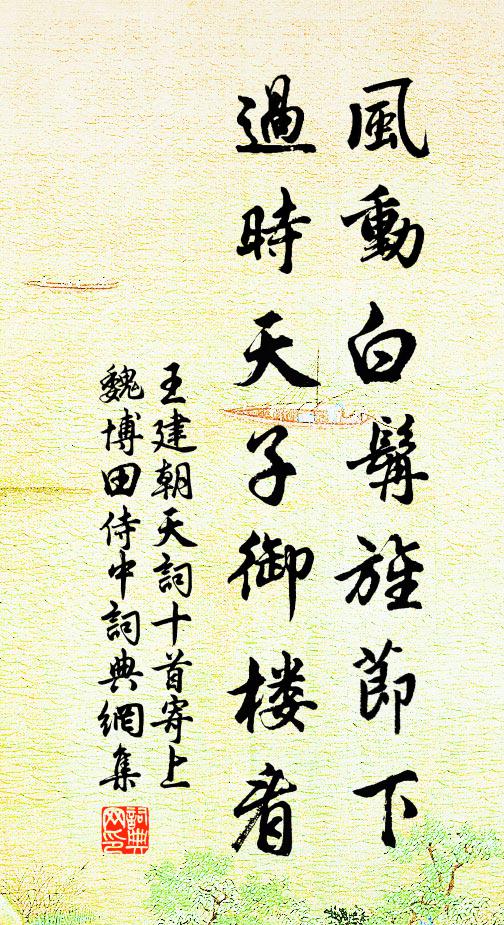 風動白髯旌節下
過時天子御楼看
王建朝天詞十首寄上
魏博田侍中詞典網集
詞典
网印